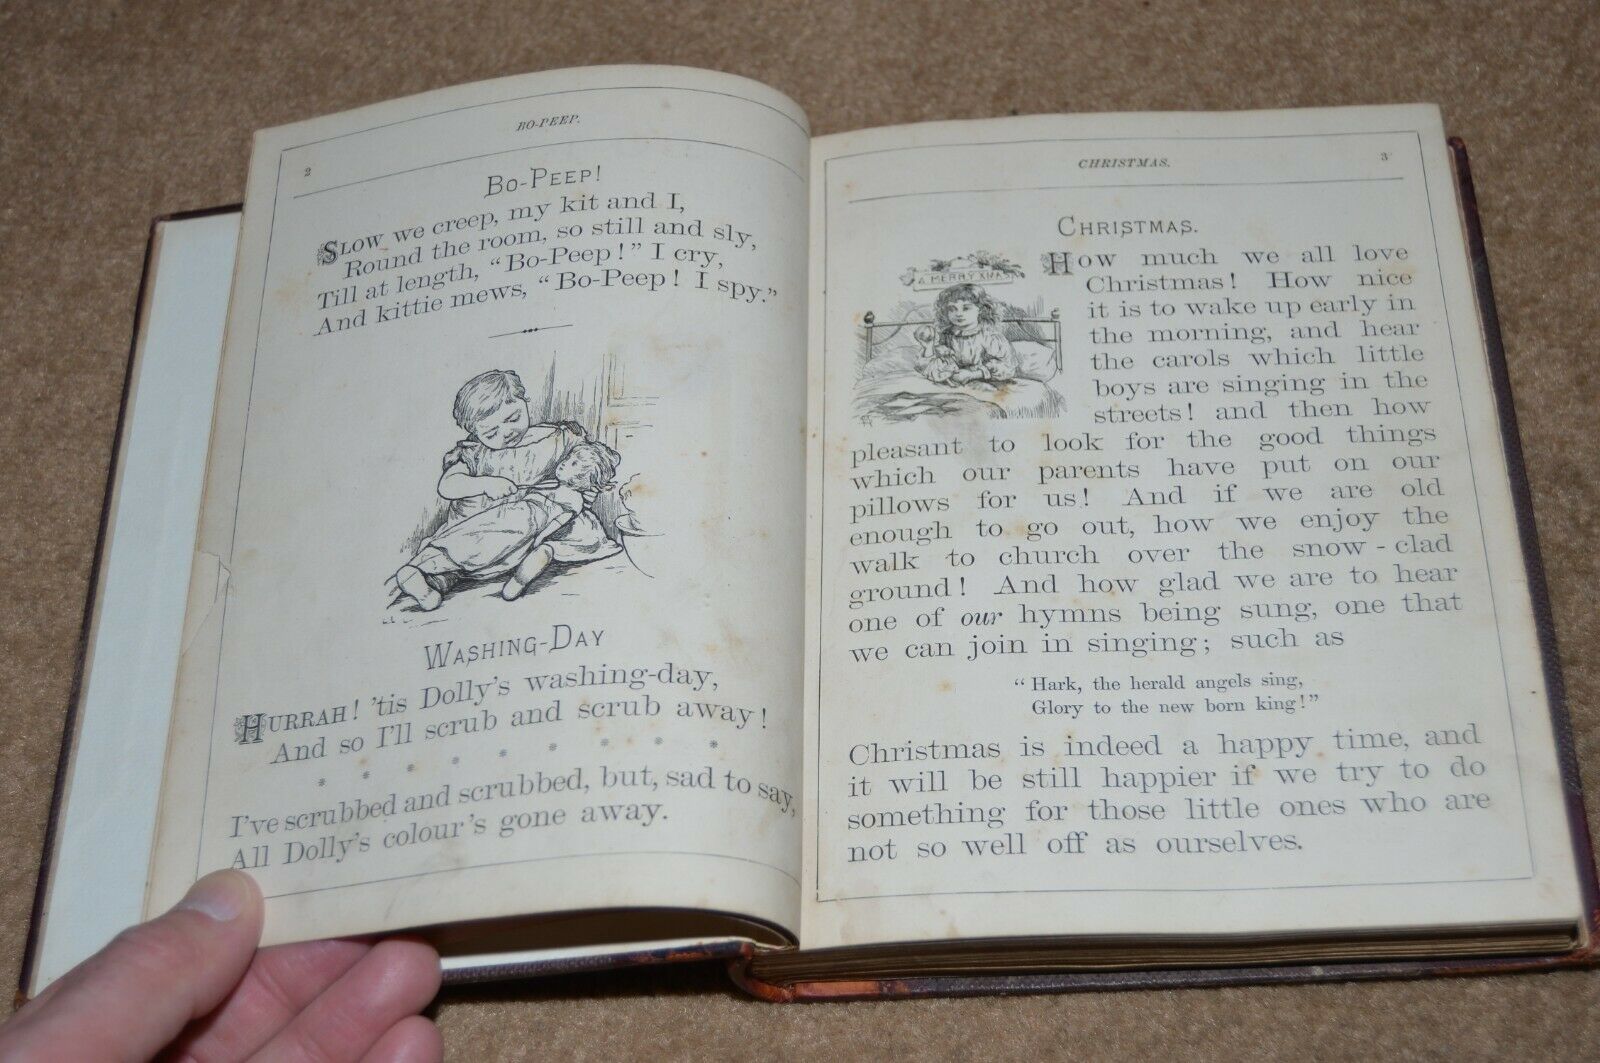 BO-PEEP.
2
BO-PEEP!
SLOW we creep, my kit and I,
Round the room, so still and sly,
Till at length, “Bo-Peep!” I cry,
And kittie mews, “Bo-Peep! I spy.”
WASHING-DAY
HURRAH! ’tis Dolly’s washing-day,
And so I’ll scrub and scrub away!
* * * * * * * *
I’ve scrubbed and scrubbed, but, sad to say,
All Dolly’s colour’s gone away.
CHRISTMAS.
3
CHRISTMAS.
A MERRY XMAS
HOW much we all love
Christmas! How nice
it is to wake up early in
the morning, and hear
the carols which little
boys are singing in the
streets! and then how
pleasant to look for the good things
which our parents have put on our
pillows for us! And if we are old
enough to go out, how we enjoy the
walk to church over the snow-clad
ground! And how glad we are to hear
one of our hymns being sung, one that
we can join in singing; such as
“Hark, the herald angels sing,
Glory to the new born king!”
Christmas is indeed a happy time, and
it will be still happier if we try to do
something for those little ones who are
not so well off as ourselves.